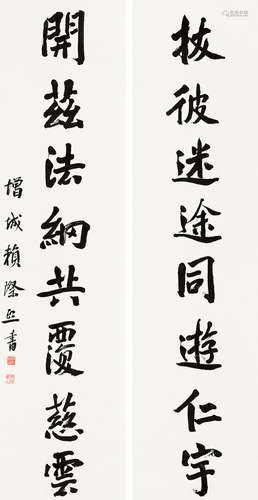 拔彼迷途同遊仁宇
開茲法網共覆慈雲
增城賴際熙書